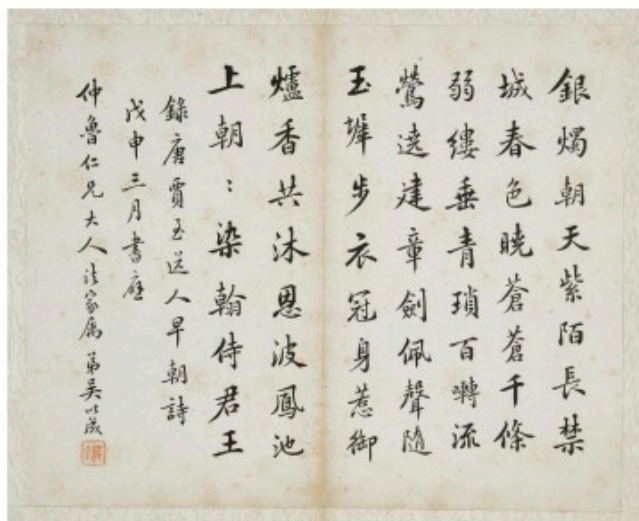 銀燭朝天紫陌長禁
城春色曉蒼蒼千條
弱縷垂青瑣百囀流
鶯遶建章劍佩聲隨
玉墀步衣冠身惹御
爐香共沐恩波鳳池
上朝：染翰侍君王
錄唐賈至送人早朝詩
戊申三月書應
仲魯仁兄大人法家屬 弟吳